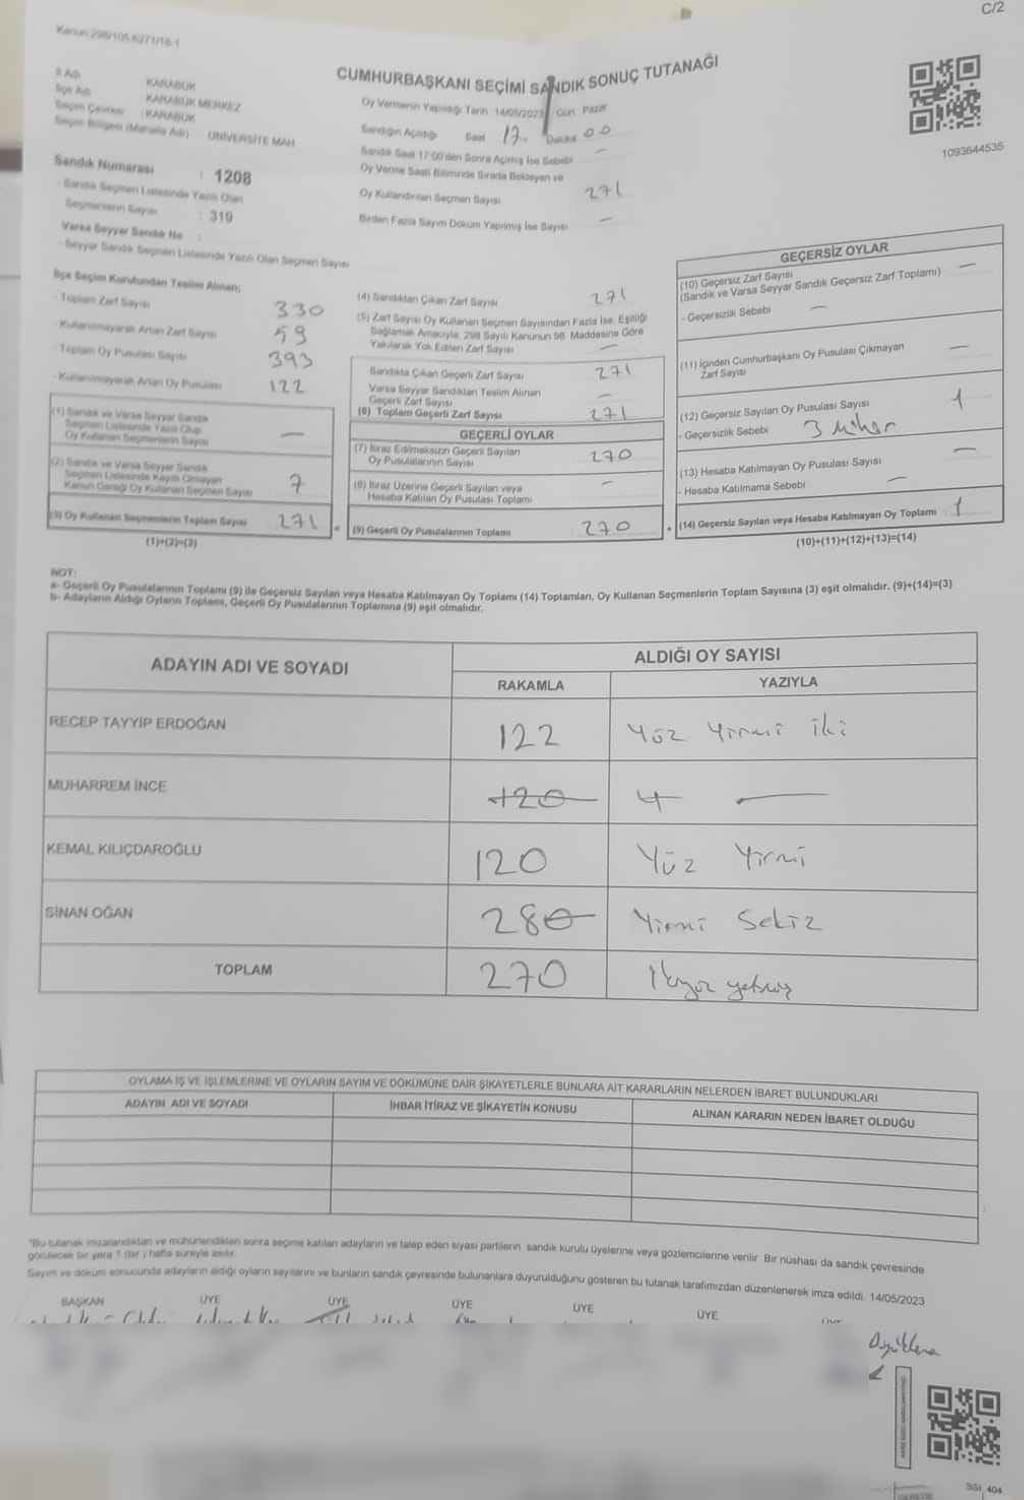 C/2
Kanun 298/105 6271/18-1
CUMHURBAŞKANI SEÇİMİ SANDIK SONUÇ TUTANAĞI
1093644535
İl Adı KARABÜK
İlçe Adı KARABÜK MERKEZ
Seçim Çevresi : KARABÜK
Seçim Bölgesi (Mahalle Adı) ÜNİVERSİTE MAH.
Sandık Numarası : 1208
- Sandık Seçmen Listesinde Yazılı Olan
Seçmenlerin Sayısı : 319
Varsa Seyyar Sandık No :
- Seyyar Sandık Seçmen Listesinde Yazılı Olan Seçmen Sayısı
Oy Vermenin Yapıldığı Tarih 14/05/2023 Gün Pazar
Sandığın Açıldığı Saat 17 Dakika 00
Sandık Saat 17:00'den Sonra Açılmış İse Sebebi —
Oy Verme Saati Bitiminde Sırada Bekleyen ve
Oy Kullandırılan Seçmen Sayısı 271
Birden Fazla Sayım Döküm Yapılmış İse Sayısı —
İlçe Seçim Kurulundan Teslim Alınan;
- Toplam Zarf Sayısı 330
- Kullanılmayarak Artan Zarf Sayısı 59
- Toplam Oy Pusulası Sayısı 393
- Kullanılmayarak Artan Oy Pusulası 122
(1) Sandık ve Varsa Seyyar Sandık
Seçmen Listesinde Yazılı Olup
Oy Kullanan Seçmenlerin Sayısı —
(2) Sandık ve Varsa Seyyar Sandık
Seçmen Listesinde Kayıtlı Olmayan
Kanun Gereği Oy Kullanan Seçmen Sayısı 7
(3) Oy Kullanan Seçmenlerin Toplam Sayısı 271
(1)+(2)=(3)
(4) Sandıktan Çıkan Zarf Sayısı 271
(5) Zarf Sayısı Oy Kullanan Seçmen Sayısından Fazla İse, Eşitliği
Sağlamak Amacıyla, 298 Sayılı Kanunun 98. Maddesine Göre
Yakılarak Yok Edilen Zarf Sayısı —
Sandıkta Çıkan Geçerli Zarf Sayısı 271
Varsa Seyyar Sandıktan Teslim Alınan
Geçerli Zarf Sayısı —
(6) Toplam Geçerli Zarf Sayısı 271
GEÇERLİ OYLAR
(7) İtiraz Edilmeksizin Geçerli Sayılan
Oy Pusulalarının Sayısı 270
(8) İtiraz Üzerine Geçerli Sayılan veya
Hesaba Katılan Oy Pusulası Toplamı —
(9) Geçerli Oy Pusulalarının Toplamı 270
GEÇERSİZ OYLAR
(10) Geçersiz Zarf Sayısı —
(Sandık ve Varsa Seyyar Sandık Geçersiz Zarf Toplamı)
- Geçersizlik Sebebi —
(11) İçinden Cumhurbaşkanı Oy Pusulası Çıkmayan
Zarf Sayısı —
(12) Geçersiz Sayılan Oy Pusulası Sayısı 1
- Geçersizlik Sebebi 3 Mühür
(13) Hesaba Katılmayan Oy Pusulası Sayısı —
- Hesaba Katılmama Sebebi —
(14) Geçersiz Sayılan veya Hesaba Katılmayan Oy Toplamı 1
(10)+(11)+(12)+(13)=(14)
NOT:
a- Geçerli Oy Pusulalarının Toplamı (9) ile Geçersiz Sayılan veya Hesaba Katılmayan Oy Toplamı (14) Toplamları, Oy Kullanan Seçmenlerin Toplam Sayısına (3) eşit olmalıdır. (9)+(14)=(3)
b- Adayların Aldığı Oyların Toplamı, Geçerli Oy Pusulalarının Toplamına (9) eşit olmalıdır.
ADAYIN ADI VE SOYADI
ALDIĞI OY SAYISI
RAKAMLA YAZIYLA
RECEP TAYYİP ERDOĞAN 122 Yüz Yirmi iki
MUHARREM İNCE 120 —
KEMAL KILIÇDAROĞLU 120 Yüz Yirmi
SİNAN OĞAN 280 Yirmi Sekiz
TOPLAM 270 İkiyüz yetmiş
OYLAMA İŞ VE İŞLEMLERİNE VE OYLARIN SAYIM VE DÖKÜMÜNE DAİR ŞİKAYETLERLE BUNLARA AİT KARARLARIN NELERDEN İBARET BULUNDUKLARI
ADAYIN ADI VE SOYADI İHBAR İTİRAZ VE ŞİKAYETİN KONUSU ALINAN KARARIN NEDEN İBARET OLDUĞU
*Bu tutanak imzalandıktan ve mühürlendikten sonra seçime katılan adayların ve talep eden siyasi partilerin sandık kurulu üyelerine veya gözlemcilerine verilir. Bir nüshası da sandık çevresinde
görülecek bir yere 1 (bir) hafta süreyle asılır.
Sayım ve döküm sonucunda adayların aldığı oyların sayılarını ve bunların sandık çevresinde bulunanlara duyurulduğunu gösteren bu tutanak tarafımızdan düzenlenerek imza edildi. 14/05/2023
BAŞKAN ÜYE ÜYE ÜYE ÜYE ÜYE
SSI 404